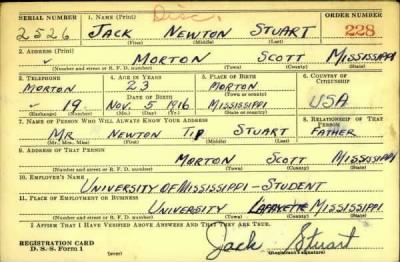 SERIAL NUMBER 1. NAME (Print) Disc. ORDER NUMBER
2526 JACK NEWTON STUART 228
(First) (Middle) (Last)
2. ADDRESS (Print)
✓ MORTON SCOTT MISSISSIPPI
(Number and street or R. F. D. number) (Town) (County) (State)
3. TELEPHONE 4. AGE IN YEARS 5. PLACE OF BIRTH 6. COUNTRY OF CITIZENSHIP
MORTON 23 MORTON
DATE OF BIRTH (Town or county)
✓ 19 NOV. 5 1916 MISSISSIPPI USA
(Exchange) (Number) (Mo.) (Day) (Yr.) (State or country)
7. NAME OF PERSON WHO WILL ALWAYS KNOW YOUR ADDRESS 8. RELATIONSHIP OF THAT PERSON
MR NEWTON TIP STUART FATHER
(Mr., Mrs., Miss) (First) (Middle) (Last)
9. ADDRESS OF THAT PERSON
MORTON SCOTT MISSISSIPPI
(Number and street or R. F. D. number) (Town) (County) (State)
10. EMPLOYER'S NAME
UNIVERSITY OF MISSISSIPPI - STUDENT
11. PLACE OF EMPLOYMENT OR BUSINESS
UNIVERSITY LAFAYETTE MISSISSIPPI
(Number and street or R. F. D. number) (Town) (County) (State)
I AFFIRM THAT I HAVE VERIFIED ABOVE ANSWERS AND THAT THEY ARE TRUE.
REGISTRATION CARD Jack Stuart
D. S. S. Form 1 (over) (Registrant's signature)